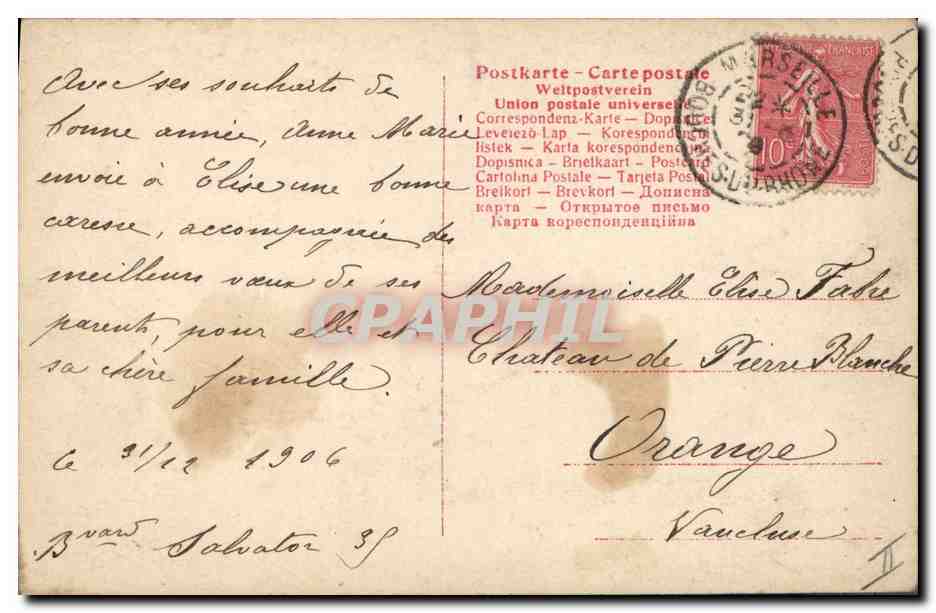 Avec ses souhaits de
bonne année, Anne Marie
envoie à Elise une bonne
caresse, accompagnée des
meilleurs vœux de ses
parents, pour elle et
sa chère famille.
Le 31/12 1906
Bvard Salvator 35
Postkarte - Carte postale
Weltpostverein
Union postale universelle
Correspondenz-Karte - Dopisnice
Levelező-Lap - Korespondencni
listek - Karta korespondencyjna
Dopisnica - Briefkaart - Postcard
Cartolina Postale - Tarjeta Postal
Brefkort - Brevkort - Дописна
карта - Открытое письмо
Карта кореспонденційна
MARSEILLE
BOUCHES-DU-RHONE
FRANÇAISE
10c
Mademoiselle Elise Fabre
Chateau de Pierre Blanche
Orange
Vaucluse
II
CPAPHIL